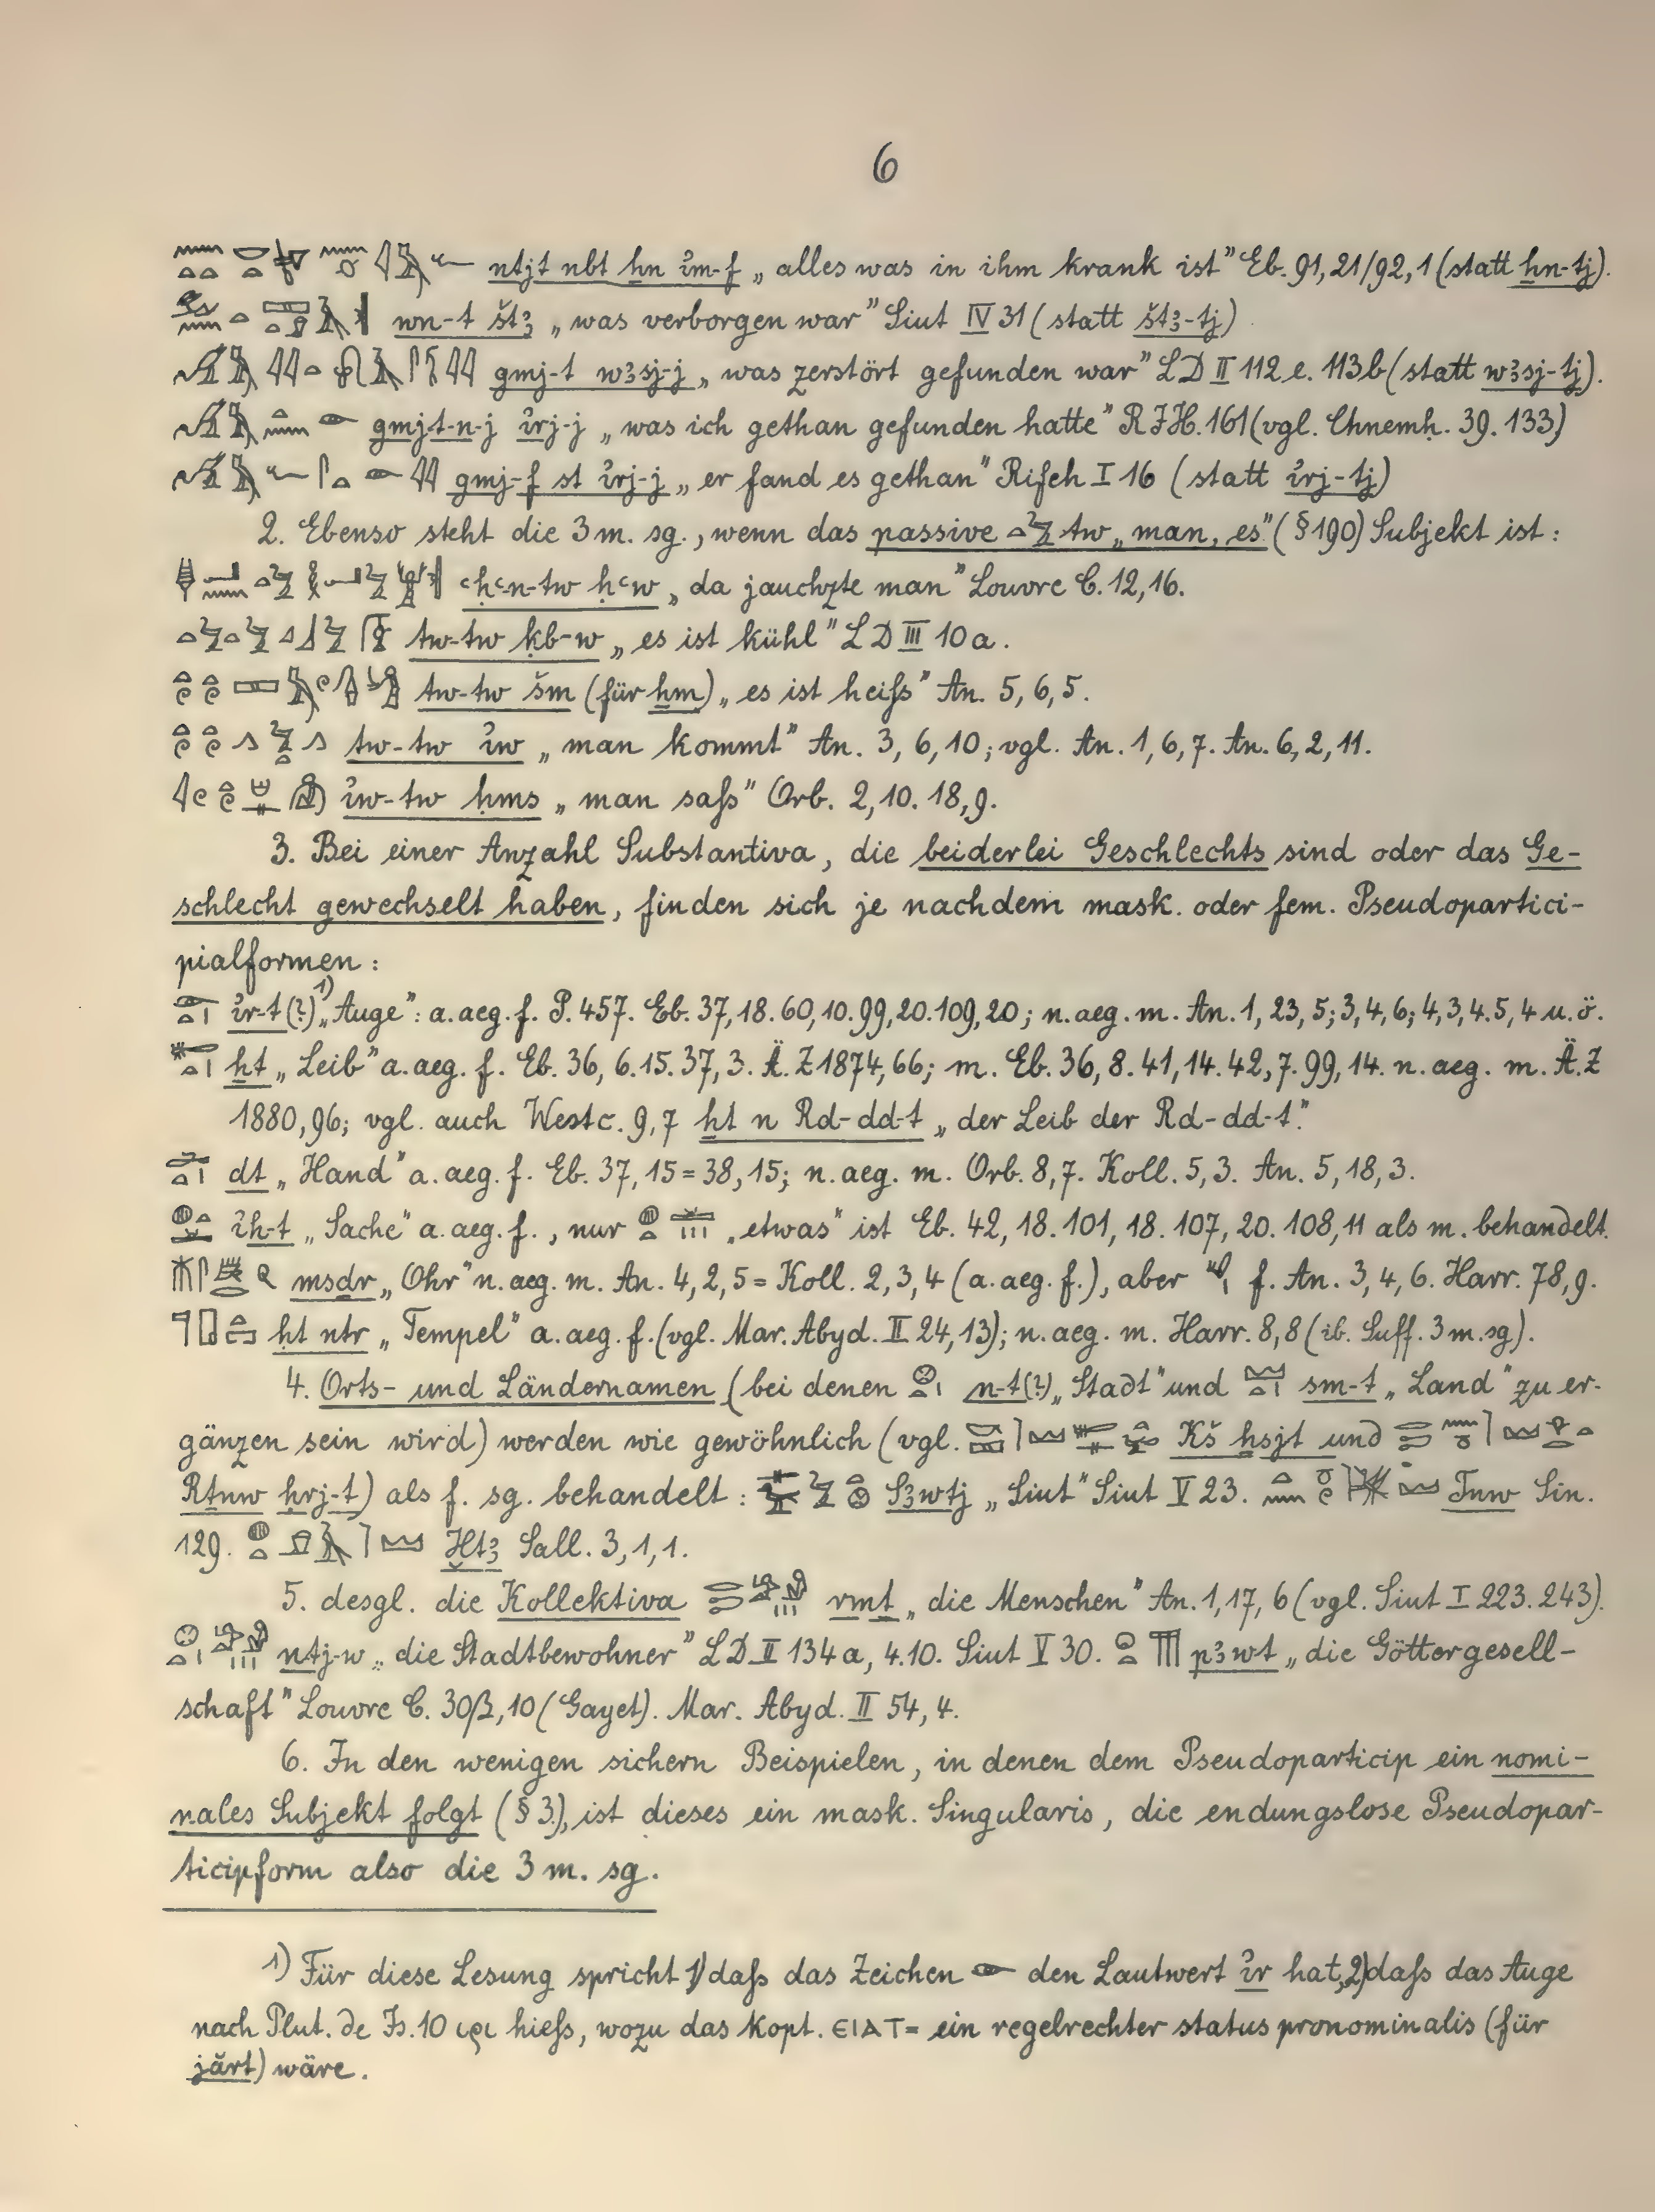 6
ntjt nbt ẖn i͗m-f „alles was in ihm krank ist" Eb. 91,21/92,1 (statt ẖn-tj).
wn-t št3 „was verborgen war" Siut IV 31 (statt št3-tj)
gmj-t w3sj-j „was zerstört gefunden war" LD II 112 e. 113b (statt w3sj-tj).
gmjt-n-j i͗rj-j „was ich gethan gefunden hatte" RJH. 161 (vgl. Chnemḥ. 39. 133)
gmj-f st i͗rj-j „er fand es gethan" Rifeh I 16 (statt i͗rj-tj)
2. Ebenso steht die 3 m. sg., wenn das passive tw „man, es" (§ 190) Subjekt ist:
ꜥḥꜥ-n-tw ḥꜥw „da jauchzte man" Louvre C. 12,16.
tw-tw ḳb-w „es ist kühl" LD III 10 a.
tw-tw šm (für ẖm) „es ist heiſs" An. 5, 6, 5.
tw-tw i͗w „man kommt" An. 3, 6, 10; vgl. An. 1, 6, 7. An. 6, 2, 11.
i͗w-tw ḥms „man saſs" Orb. 2, 10. 18, 9.
3. Bei einer Anzahl Substantiva, die beiderlei Geschlechts sind oder das Ge-
schlecht gewechselt haben, finden sich je nachdem mask. oder fem. Pseudopartici-
pialformen:
i͗r-t(?)¹⁾ „Auge": a. aeg. f. P. 457. Eb. 37, 18. 60, 10. 99, 20. 109, 20; n. aeg. m. An. 1, 23, 5; 3, 4, 6; 4, 3, 4. 5, 4 u. ö.
ẖt „Leib" a. aeg. f. Eb. 36, 6. 15. 37, 3. Ä. Z 1874, 66; m. Eb. 36, 8. 41, 14. 42, 7. 99, 14. n. aeg. m. Ä. Z
1880, 96; vgl. auch Westc. 9, 7 ẖt n Rd-dd-t „der Leib der Rd-dd-t".
dt „Hand" a. aeg. f. Eb. 37, 15 = 38, 15; n. aeg. m. Orb. 8, 7. Koll. 5, 3. An. 5, 18, 3.
i͗ḫ-t „Sache" a. aeg. f., nur „etwas" ist Eb. 42, 18. 101, 18. 107, 20. 108, 11 als m. behandelt.
msḏr „Ohr" n. aeg. m. An. 4, 2, 5 = Koll. 2, 3, 4 (a. aeg. f.), aber f. An. 3, 4, 6. Harr. 78, 9.
ḥt ntr „Tempel" a. aeg. f. (vgl. Mar. Abyd. II 24, 13); n. aeg. m. Harr. 8, 8 (ib. Suff. 3 m. sg).
4. Orts- und Ländernamen (bei denen n-t(?) „Stadt" und sm-t „Land" zu er-
gänzen sein wird) werden wie gewöhnlich (vgl. Kš ẖsjt und
Rṯnw ḥrj-t) als f. sg. behandelt: S3wtj „Siut" Siut V 23. Ṯnw Sin.
129. Ḫt3 Sall. 3, 1, 1.
5. desgl. die Kollektiva rmṯ „die Menschen" An. 1, 17, 6 (vgl. Siut I 223. 243).
ntj-w „die Stadtbewohner" LD II 134 a, 4. 10. Siut V 30. p3wt „die Göttergesell-
schaft" Louvre C. 30β, 10 (Gayet). Mar. Abyd. II 54, 4.
6. In den wenigen sichern Beispielen, in denen dem Pseudoparticip ein nomi-
nales Subjekt folgt (§ 3), ist dieses ein mask. Singularis, die endungslose Pseudopar-
ticipform also die 3 m. sg.
1) Für diese Lesung spricht 1) daſs das Zeichen den Lautwert i͗r hat, 2) daſs das Auge
nach Plut. de Is. 10 ιρι hieſs, wozu das kopt. ⲉⲓⲁⲧ= ein regelrechter status pronominalis (für
jărt) wäre.